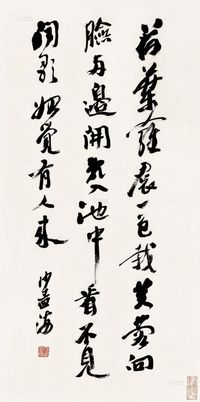 荷葉羅裙一色裁芙蓉向
臉兩邊開亂入池中看不見
聞歌始覺有人來 沙孟海